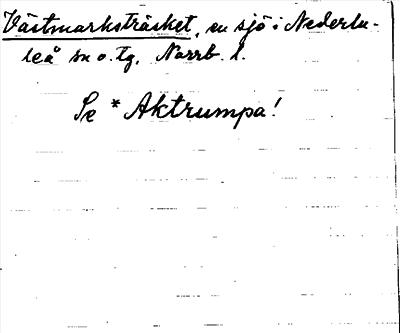 Västmarksträsket, en sjö i Nederlu-
leå sn o. tg, Norrb. l.
Se * Aktrumpa!